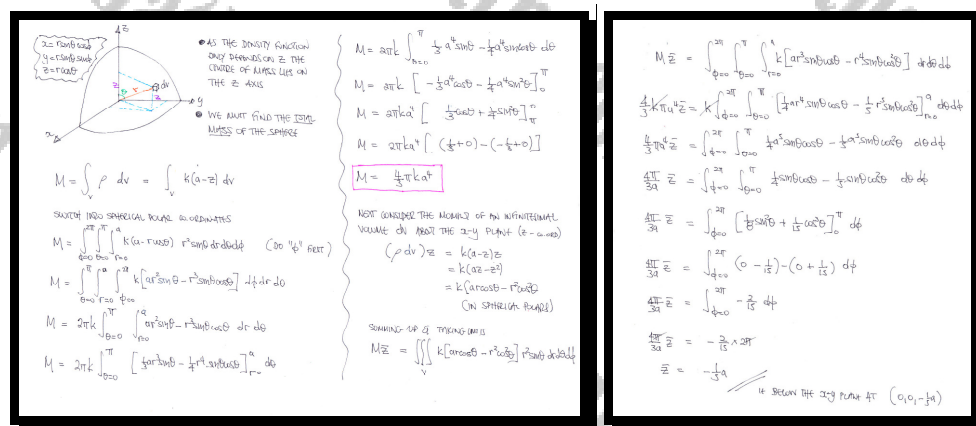 x = rsinθcosφ
y = rsinθsinφ
z = rcosθ
z
dv
r
θ
z
y
x
• AS THE DENSITY FUNCTION
ONLY DEPENDS ON Z THE
CENTRE OF MASS LIES ON
THE Z AXIS
• WE MUST FIND THE TOTAL
MASS OF THE SPHERE
M = ∫_V ρ dv = ∫_V k(a-z) dv
SWITCH INTO SPHERICAL POLAR CO-ORDINATES
M = ∫_{φ=0}^{2π} ∫_{θ=0}^{π} ∫_{r=0}^{a} k(a-rcosθ) r²sinθ dr dθ dφ (DO "φ" FIRST)
M = ∫_{θ=0}^{π} ∫_{r=0}^{a} ∫_{φ=0}^{2π} k[ar²sinθ - r³sinθcosθ] dφ dr dθ
M = 2πk ∫_{θ=0}^{π} ∫_{r=0}^{a} ar²sinθ - r³sinθcosθ dr dθ
M = 2πk ∫_{θ=0}^{π} [⅓ar³sinθ - ¼r⁴sinθcosθ]_{r=0}^{a} dθ
M = 2πk ∫_{θ=0}^{π} ⅓a⁴sinθ - ¼a⁴sinθcosθ dθ
M = 2πk [-⅓a⁴cosθ - ⅛a⁴sin²θ]_0^π
M = 2πka⁴ [⅓cosθ + ⅛sin²θ]_π^0
M = 2πka⁴ [(⅓+0) - (-⅓+0)]
M = 4/3 πka⁴
NEXT CONSIDER THE MOMENT OF AN INFINITESIMAL
VOLUME dv ABOUT THE x-y PLANE (z-co.ord)
(ρ dv) z = k(a-z)z
= k(az-z²)
= k[arcosθ - r²cos²θ]
(IN SPHERICAL POLARS)
SUMMING UP & TAKING LIMITS
Mz̄ = ∭_V k[arcosθ - r²cos²θ] r²sinθ dr dθ dφ
Mz̄ = ∫_{φ=0}^{2π} ∫_{θ=0}^{π} ∫_{r=0}^{a} k[ar³sinθcosθ - r⁴sinθcos²θ] dr dθ dφ
4/3 kπa⁴z̄ = k ∫_{φ=0}^{2π} ∫_{θ=0}^{π} [¼ar⁴sinθcosθ - ⅕r⁵sinθcos²θ]_{r=0}^{a} dθ dφ
4/3 πa⁴z̄ = ∫_{φ=0}^{2π} ∫_{θ=0}^{π} ¼a⁵sinθcosθ - ⅕a⁵sinθcos²θ dθ dφ
4π/3a z̄ = ∫_{φ=0}^{2π} ∫_{θ=0}^{π} ¼sinθcosθ - ⅕sinθcos²θ dθ dφ
4π/3a z̄ = ∫_{φ=0}^{2π} [⅛sin²θ + 1/15 cos³θ]_0^π dφ
4π/3a z̄ = ∫_{φ=0}^{2π} (0 - 1/15) - (0 + 1/15) dφ
4π/3a z̄ = ∫_{φ=0}^{2π} -2/15 dφ
4π/3a z̄ = -2/15 × 2π
z̄ = -⅕a
IE BELOW THE x-y PLANE AT (0,0,-⅕a)